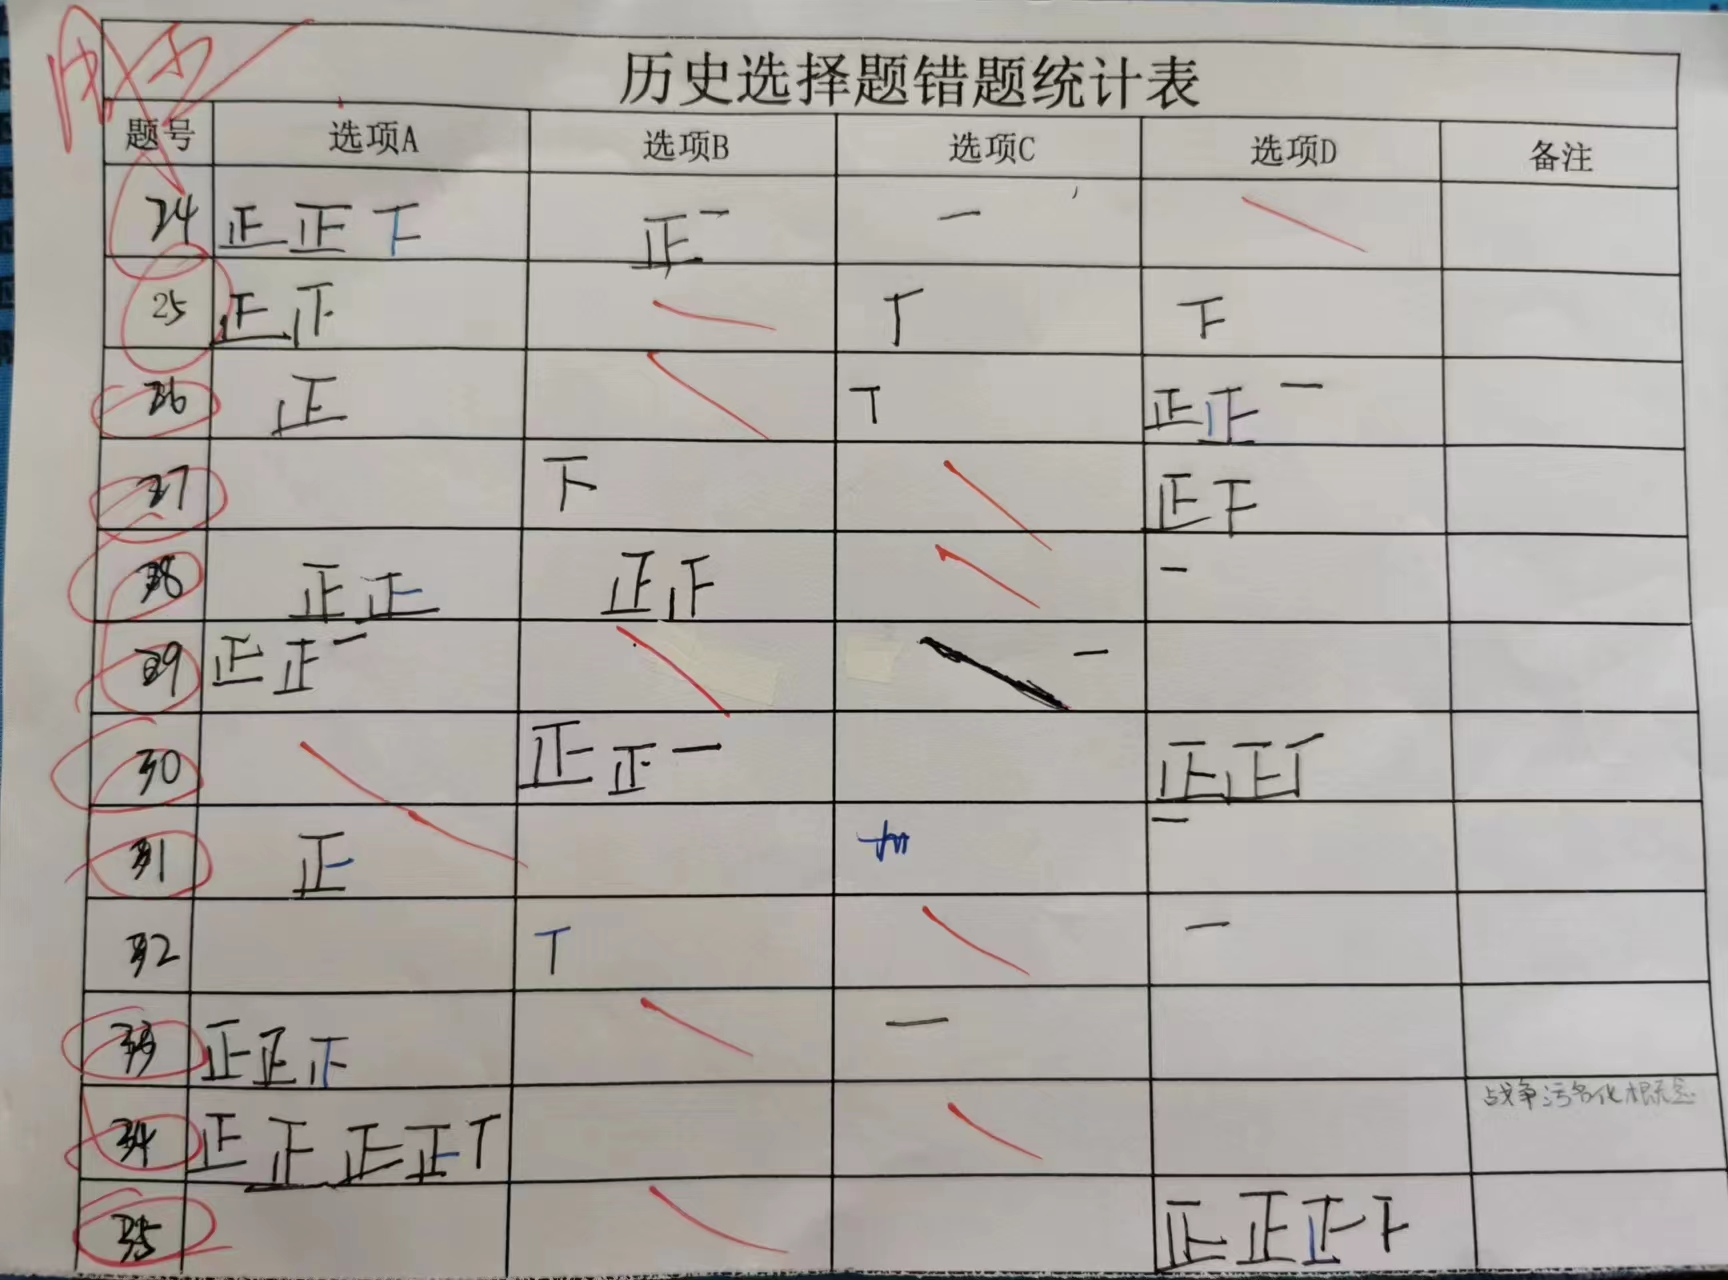 历史选择题错题统计表
题号 选项A 选项B 选项C 选项D 备注
24 正正下 正一 一
25 正正 丅 下
26 正 丅 正正一
27 下 正下
28 正正 正正 一
29 正正一 一
30 正正一 正正丅
31 正 一
32 丅 一
33 正正下 一
34 正正正正丅 战争污名化概念
35 正正正下